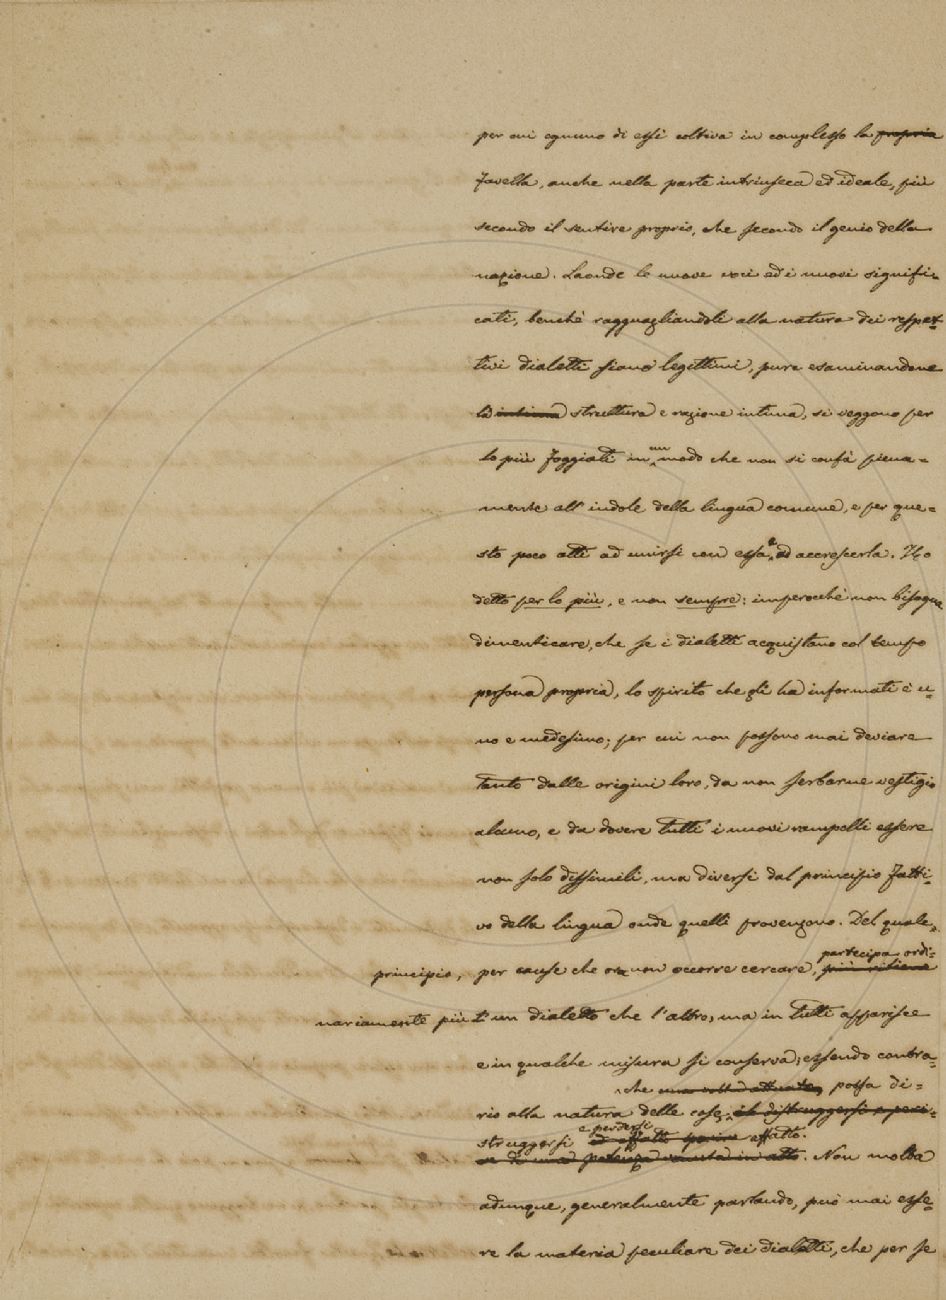 per cui ognuno di essi coltiva in complesso la propria
favella, anche nella parte intrinseca ed ideale, più
secondo il sentire proprio, che secondo il genio della
nazione. Laonde le nuove voci ed i nuovi signifi-
cati, benchè ragguagliandoli alla natura dei respet-
tivi dialetti siano legittimi, pure esaminandone
la intima struttura e ragione intima, si veggono per
lo più foggiati in un modo che non si confà piena=
mente all'indole della lingua comune, e per que=
sto poco atti ad unirsi con essa e ad accrescerla. Ho
detto per lo più, e non sempre: imperocchè non bisogna
dimenticare, che se i dialetti acquistano col tempo
persona propria, lo spirito che gli ha informati è u=
no e medesimo; per cui non possono mai deviare
tanto dalle origini loro, da non serbarne vestigio
alcuno, e da dovere tutti i nuovi rampolli essere
non solo dissimili, ma diversi dal principio fatti-
vo della lingua onde quelli provengono. Del quale
partecipa ordi=
principio, per cause che ora non occorre cercare, più ritiene
nariamente più l'un dialetto che l'altro, ma in tutti apparisce
e in qualche misura si conserva; essendo contra=
che una volta attuata, possa di=
rio alla natura delle cose, il distruggersi e peri=
e perdersi
struggersi ad affatto affatto.
se di una potenza venuta in atto. Non molta
adunque, generalmente parlando, può mai esse=
re la materia peculiare dei dialetti, che per se